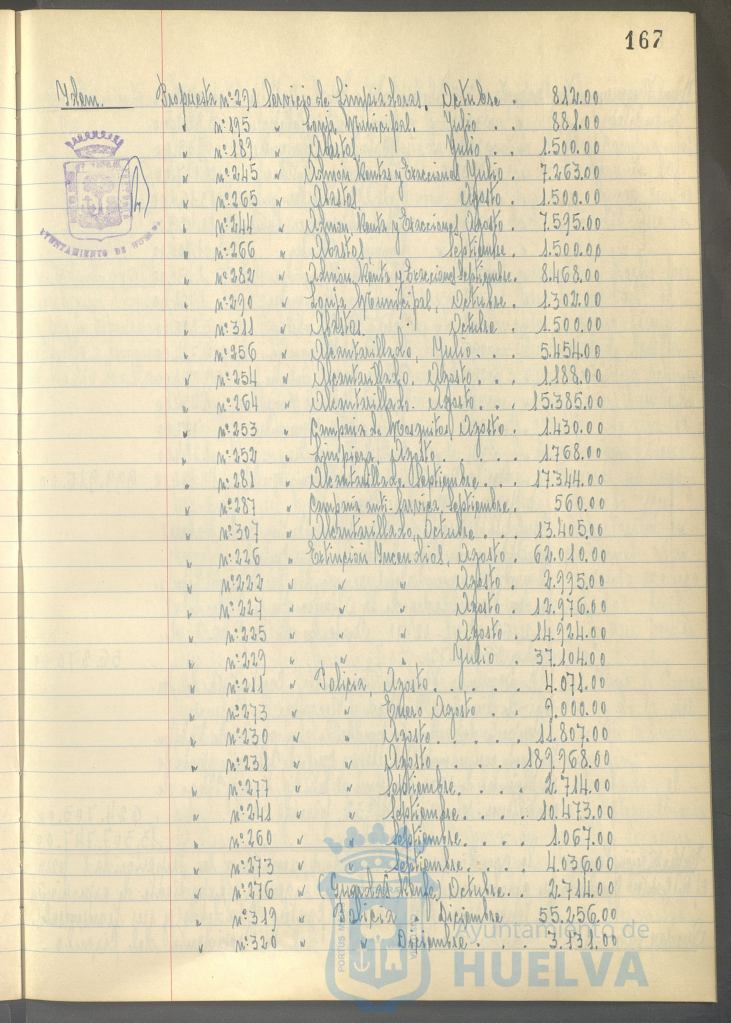 167
Idem. Propuesta nº 291 Servicio de Limpiadoras, Octubre. 812.00
" nº 195 " Lonja Municipal. Julio . . 881.00
" nº 189 " Abastos. Julio . . 1.500.00
" nº 245 " Admón Rentas y Exacciones Julio. 7.263.00
" nº 265 " Abastos. Agosto . 1.500.00
" nº 244 " Admon, Renta y Exacciones, Agosto. 7.595.00
" nº 266 " Abastos Septiembre . 1.500.00
" nº 282 " Admón, Renta y Exacciones Septiembre. 8.468.00
" nº 290 " Lonja Municipal, Octubre . 1.302.00
" nº 311 " Abastos. Octubre . 1.500.00
" nº 256 " Alcantarillado, Julio . . . 5.454.00
" nº 254 " Alcantarillado. Agosto . . . 1.188.00
" nº 264 " Alcantarillado. Agosto . . . 15.385.00
" nº 253 " Campaña de Mosquitos, Agosto . 1.430.00
" nº 252 " Limpieza, Agosto . . . . . 1.768.00
" nº 281 " Alcantarillado, Septiembre . . . 17.344.00
" nº 287 " Campaña anti-larvica, Septiembre. 560.00
" nº 307 " Alcantarillado, Octubre . . . 13.405.00
" nº 226 " Extinción Incendios, Agosto . 62.010.00
" nº 222 " " " Agosto . 2.995.00
" nº 227 " " " Agosto . 12.976.00
" nº 225 " " " Agosto . 14.924.00
" nº 229 " " " Julio . 37.104.00
" nº 211 " Policia, Agosto . . . . . 4.071.00
" nº 273 " " Enero Agosto . . 9.000.00
" nº 230 " " Agosto . . . . . 11.807.00
" nº 231 " " Agosto . . . . . 189.968.00
" nº 277 " " Septiembre . . . . 2.714.00
" nº 241 " " Septiembre . . . . 10.473.00
" nº 260 " " Septiembre . . . . 1.067.00
" nº 273 " " Septiembre . . . . 4.036.00
" nº 276 " Octubre . . 2.714.00
" nº 319 " Policia " Diciembre 55.256.00
" nº 320 " " Diciembre . . . . 3.131.00
AYUNTAMIENTO DE HUELVA
PORTUS
Ayuntamiento de
HUELVA